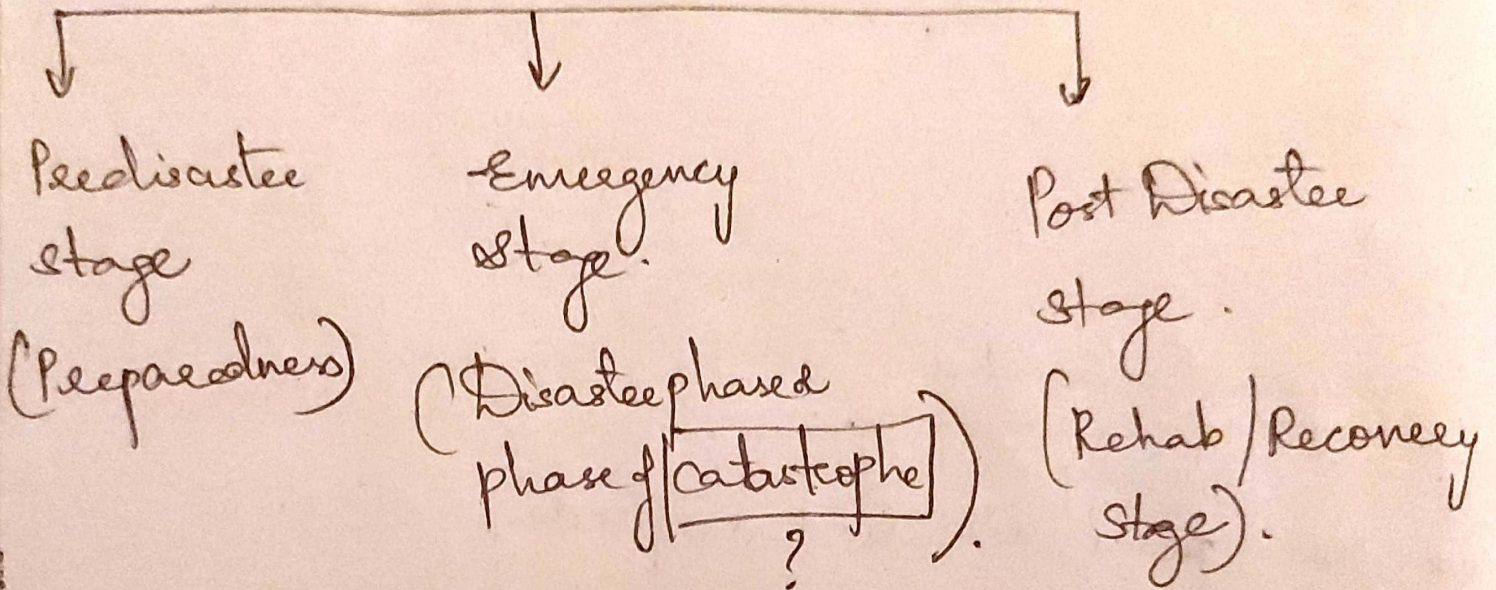 Predisaster
stage
(Preparedness)
Emergency
stage.
(Disaster phase &
phase of catastrophe).
?
Post Disaster
stage.
(Rehab/Recovery
stage).